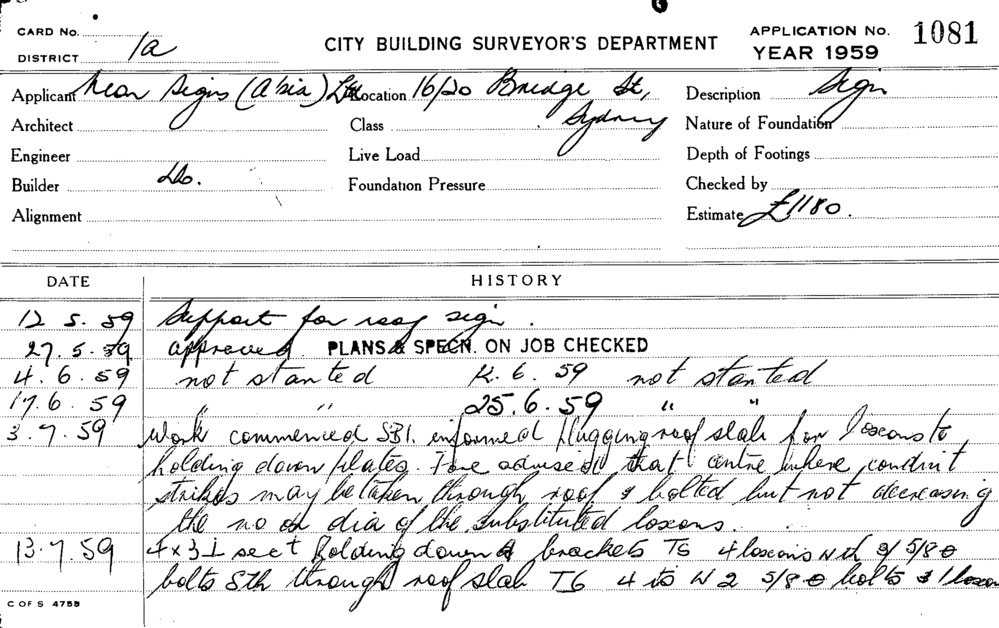 CARD No.
DISTRICT 1a
CITY BUILDING SURVEYOR'S DEPARTMENT
APPLICATION No. 1081
YEAR 1959
Applicant Neon Signs (A'sia) Ltd Location 16/20 Bridge St, Description Sign
Architect Class Sydney Nature of Foundation
Engineer Live Load Depth of Footings
Builder Do. Foundation Pressure Checked by
Alignment Estimate £1180.
DATE HISTORY
12.5.59 Support for roof sign.
27.5.59 approved. PLANS & SPECN. ON JOB CHECKED
4.6.59 not started 12.6.59 not started
17.6.59 " " 25.6.59 " "
3.7.59 Work commenced SB1. informed plugging roof slab for loxons to
holding down plates. advised that centre where conduit
strikes may be taken through roof & bolted but not decreasing
the no or dia of the substituted loxons.
13.7.59 4 x 3 sect holding down brackets TS 4 loxons Nth 5/8 ө
bolts Sth through roof slab 4 to N 2 5/8 ө bolts & 1 loxon
C OF S 4755